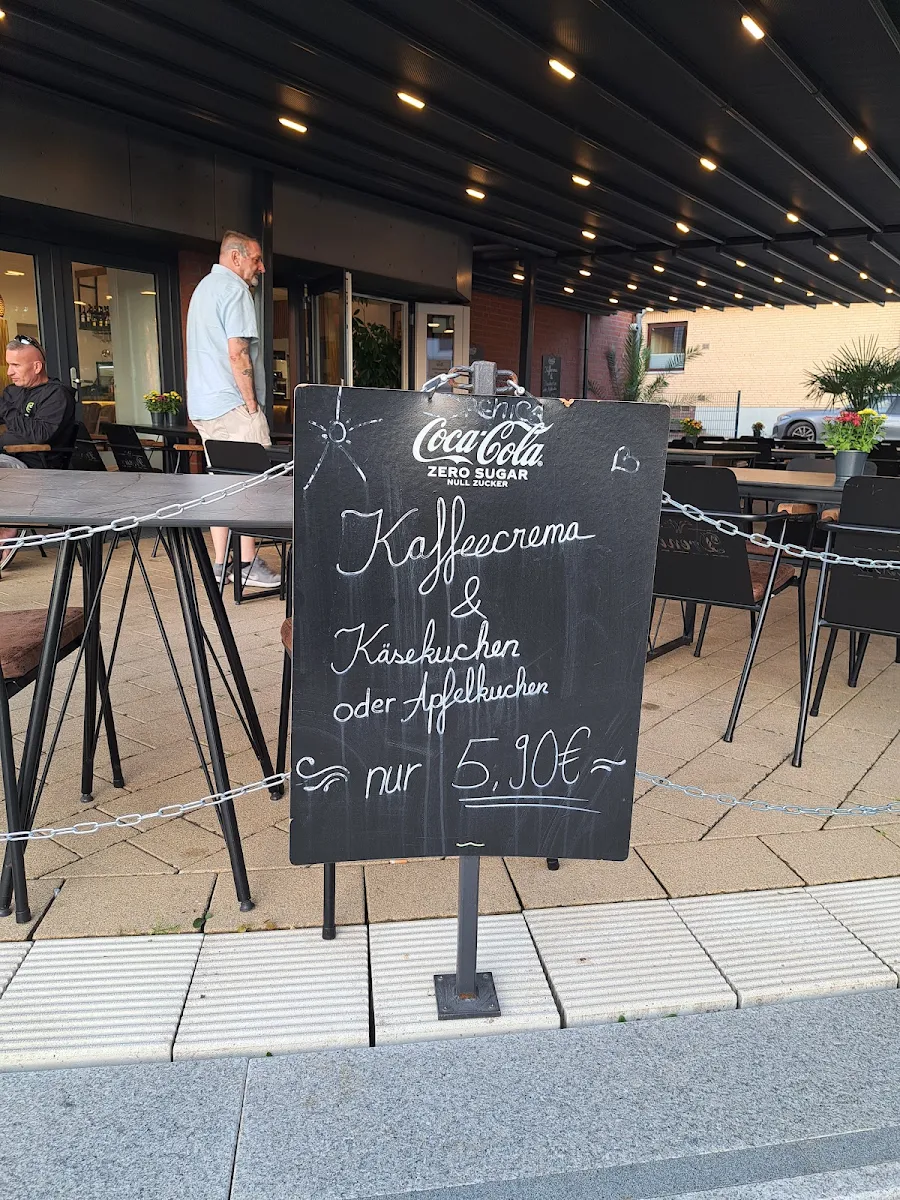 Coca-Cola
ZERO SUGAR
NULL ZUCKER
Kaffeecrema
&
Käsekuchen
oder Apfelkuchen
nur 5,90€